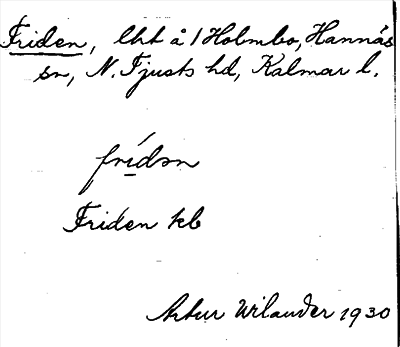 Friden, lht å 1 Holmbo, Hannäs
sn, N. Tjusts hd, Kalmar l.
frídən
Fridén kb
Artur Wilander 1930